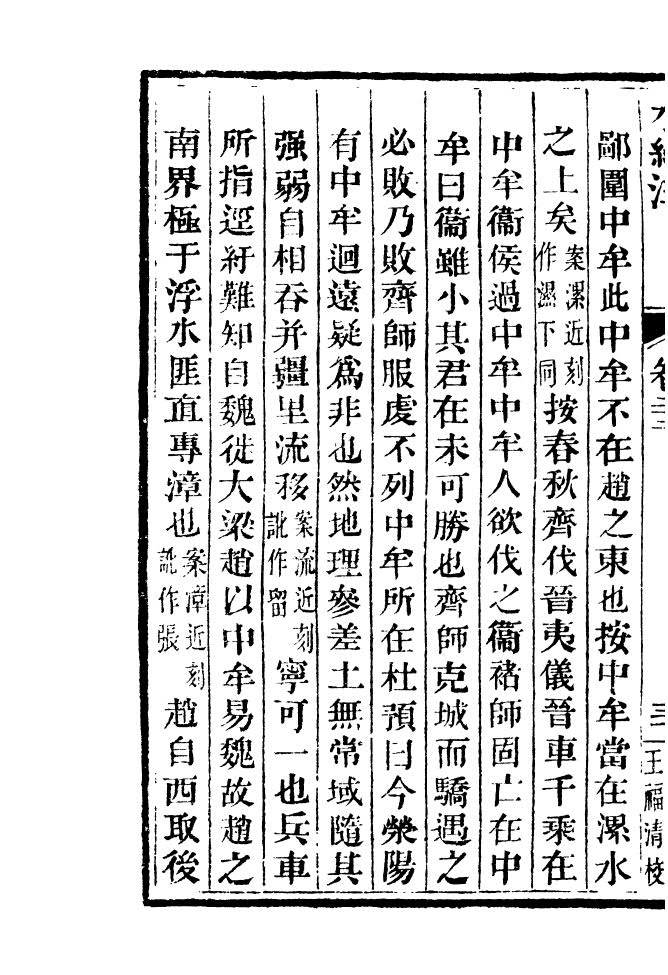 水經注 卷二十二 三 王福清校
鄙圍中牟此中牟不在趙之東也按中牟當在漯水
之上矣案漯近刻作濕下同按春秋齊伐晉夷儀晉車千乘在
中牟衞侯過中牟中牟人欲伐之衞褚師固亡在中
牟曰衞雖小其君在未可勝也齊師克城而驕遇之
必敗乃敗齊師服虔不列中牟所在杜預曰今滎陽
有中牟迴遠疑爲非也然地理參差土無常域隨其
强弱自相吞并疆里流移案流近刻訛作留寧可一也兵車
所指逕紆難知自魏徙大梁趙以中牟易魏故趙之
南界極于浮水匪直專漳也案漳近刻訛作張趙自西取後